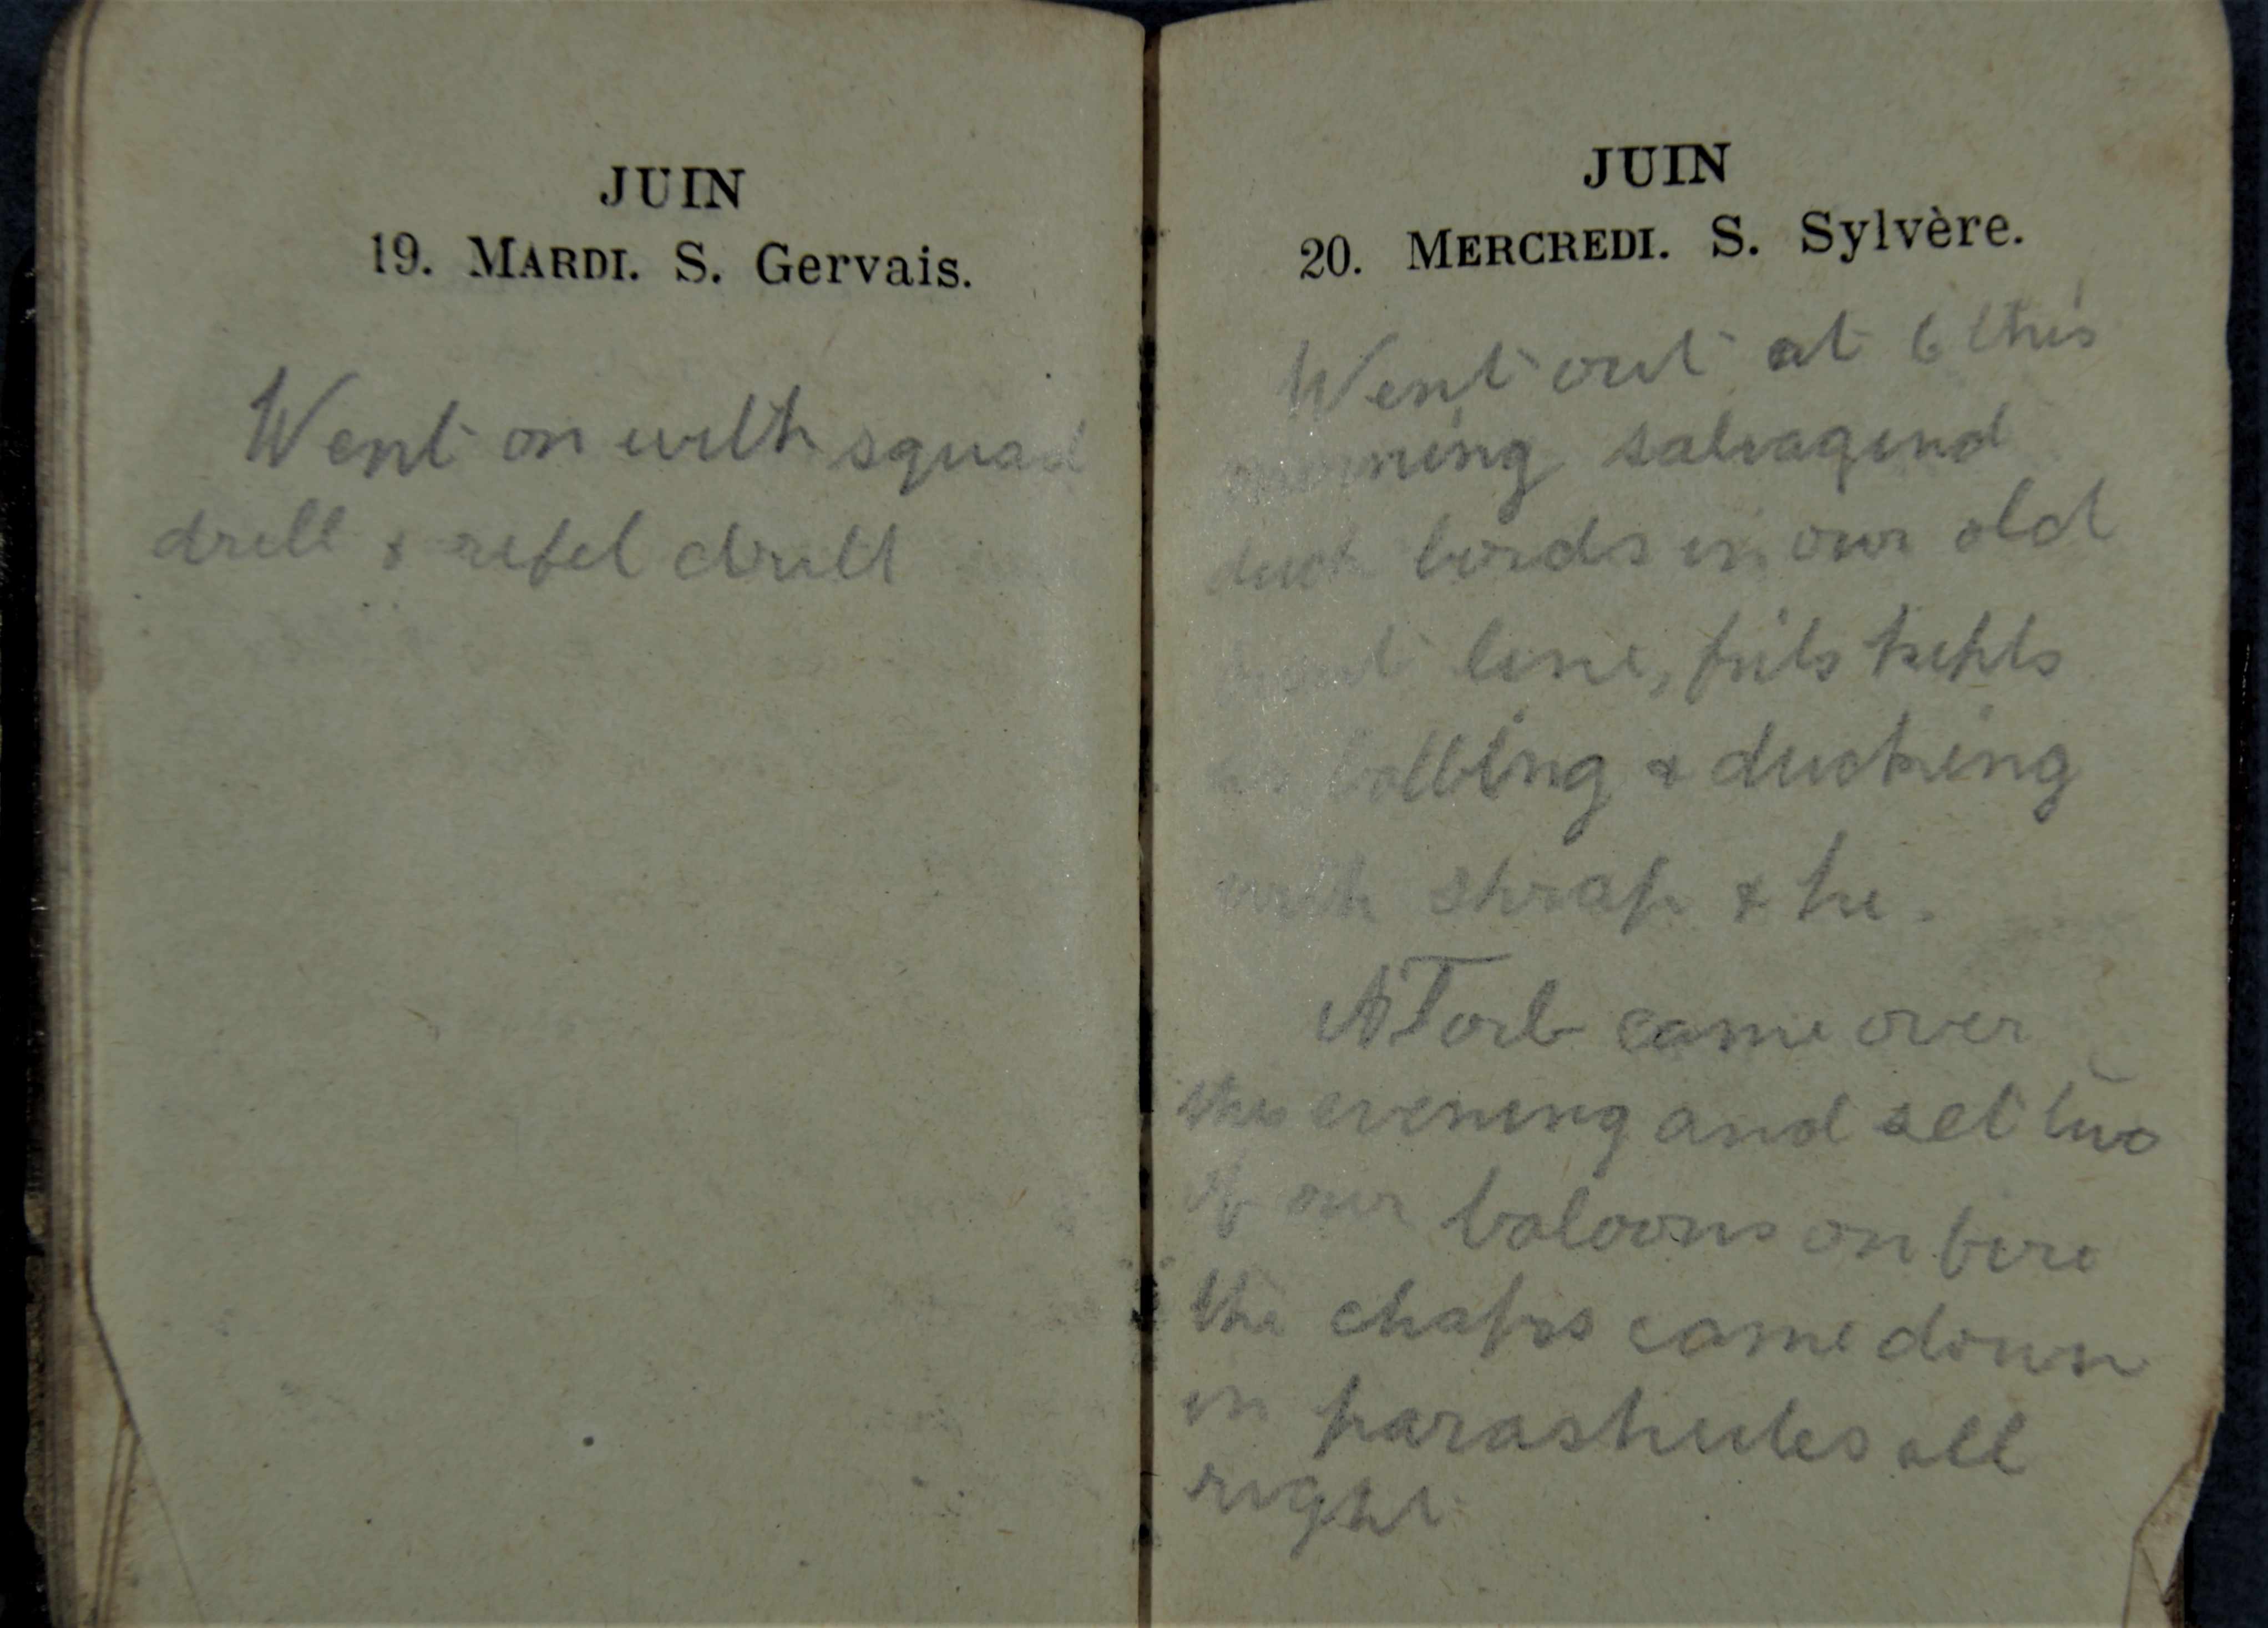 JUIN
19. MARDI. S. Gervais.
Went on with squad
drill & refel drill
JUIN
20. MERCREDI. S. Sylvère.
Went out at 6 this
morning salvagind
duck bords in our old
front line, frits kepts
us bobbing & ducking
with shrap & he.
A Torb came over
this evening and set two
of our baloons on fire
the chaps came down
in parashutes all
right